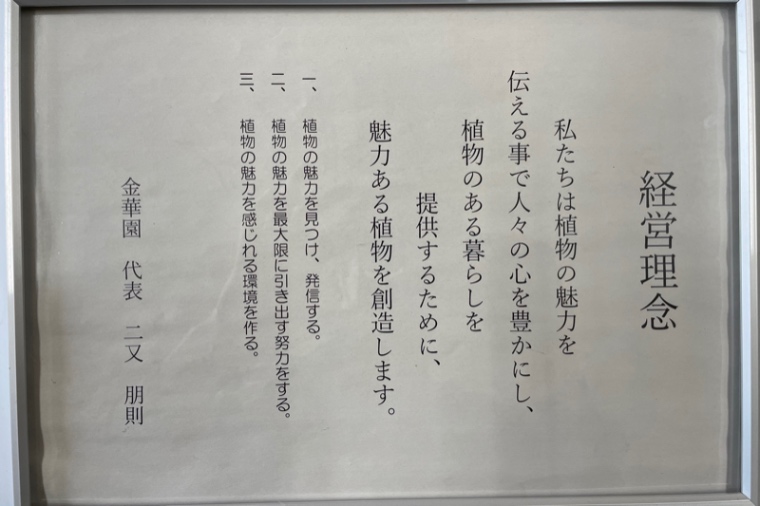 経営理念
私たちは植物の魅力を
伝える事で人々の心を豊かにし、
植物のある暮らしを
提供するために、
魅力ある植物を創造します。
一、 植物の魅力を見つけ、発信する。
二、 植物の魅力を最大限に引き出す努力をする。
三、 植物の魅力を感じれる環境を作る。
金華園 代表 二又 朋則